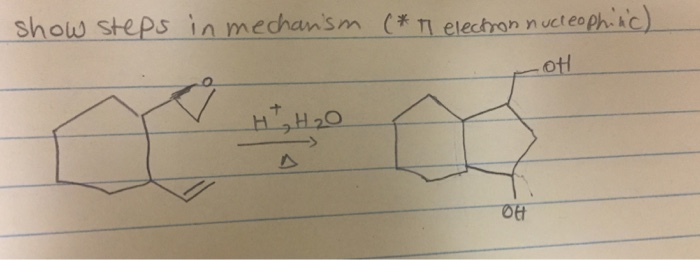 show steps in mechanism (* π electron nucleophilic)
O
OH
H⁺, H₂O
Δ
OH